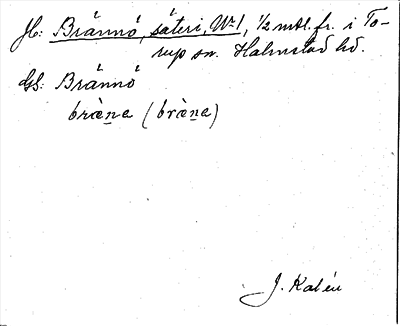 Jb: Brännö, säteri, No 1, 1/2 mtl. fr. i To-
rup sn. Halmstad hd.
Gb: Brännö
bràna (bràna)
J. Kalén